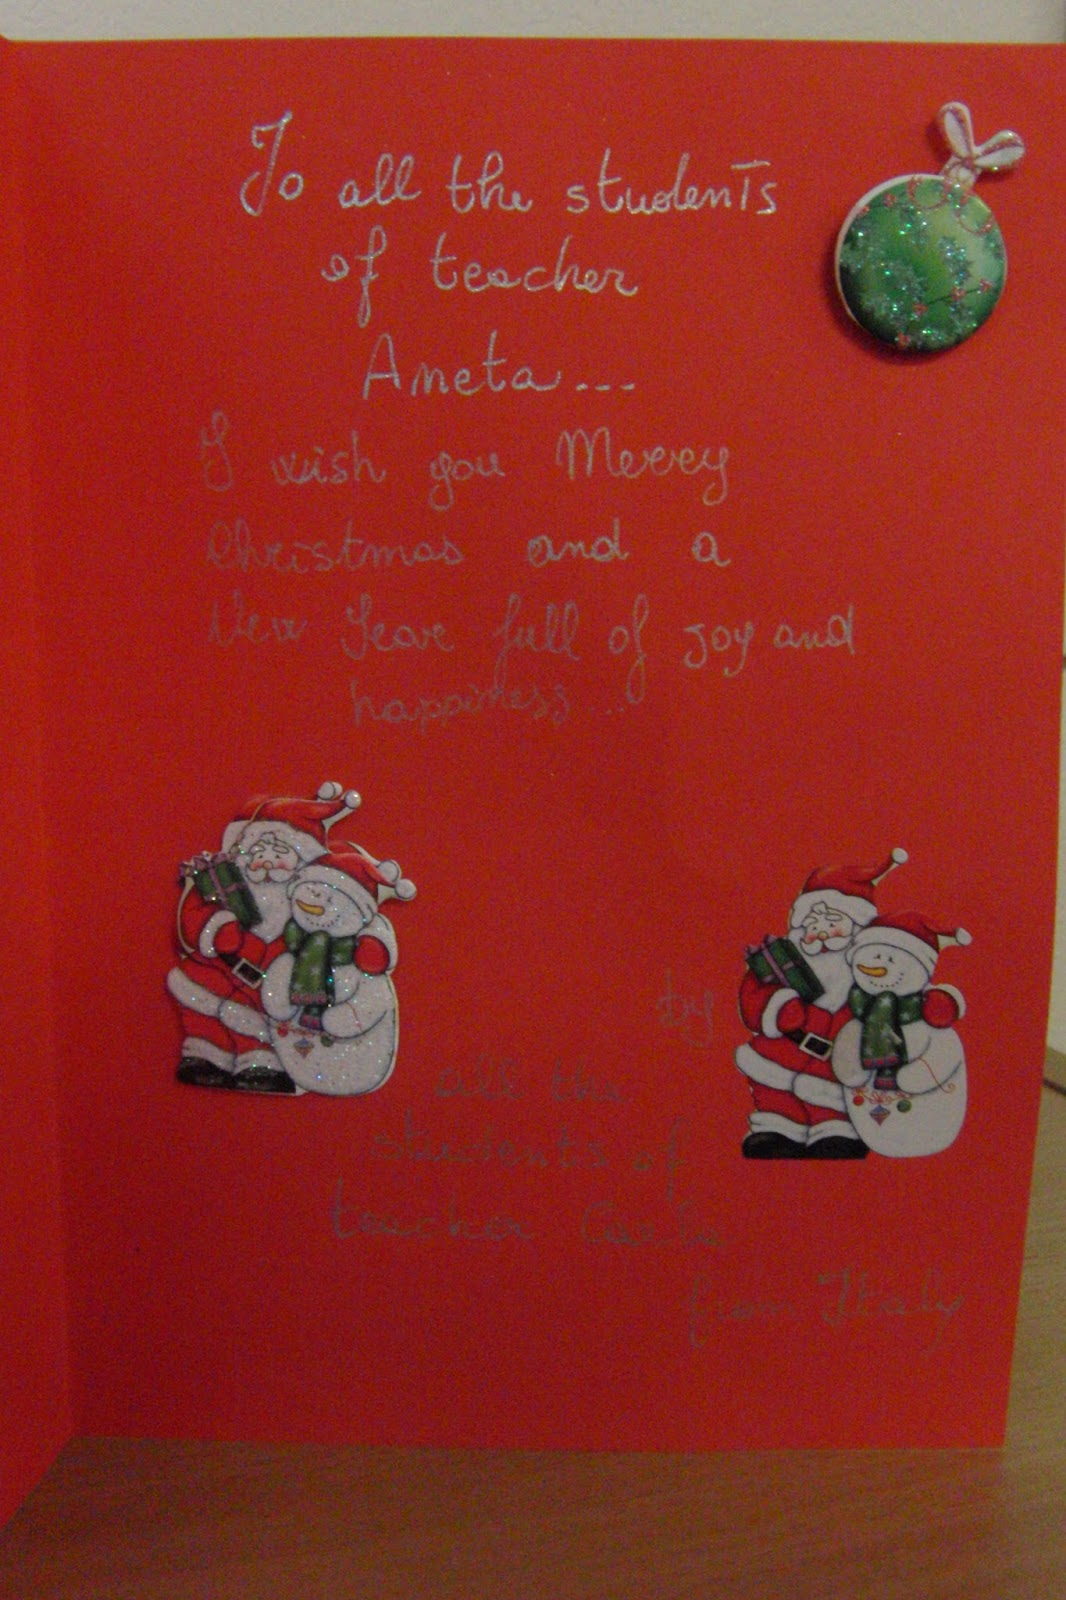 To all the students
of teacher
Aneta...
I wish you Merry
Christmas and a
New Year full of joy and
happiness...
by
all the
students of
teacher Carla
from Italy